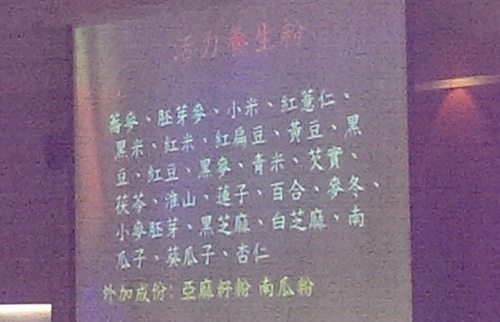 活力養生粉
蕎麥、胚芽麥、小米、紅薏仁、
黑米、紅米、紅扁豆、黃豆、黑
豆、紅豆、黑麥、青米、芡實、
茯苓、淮山、蓮子、百合、麥冬、
小麥胚芽、黑芝麻、白芝麻、南
瓜子、葵瓜子、杏仁
外加成份: 亞麻籽粉 南瓜粉